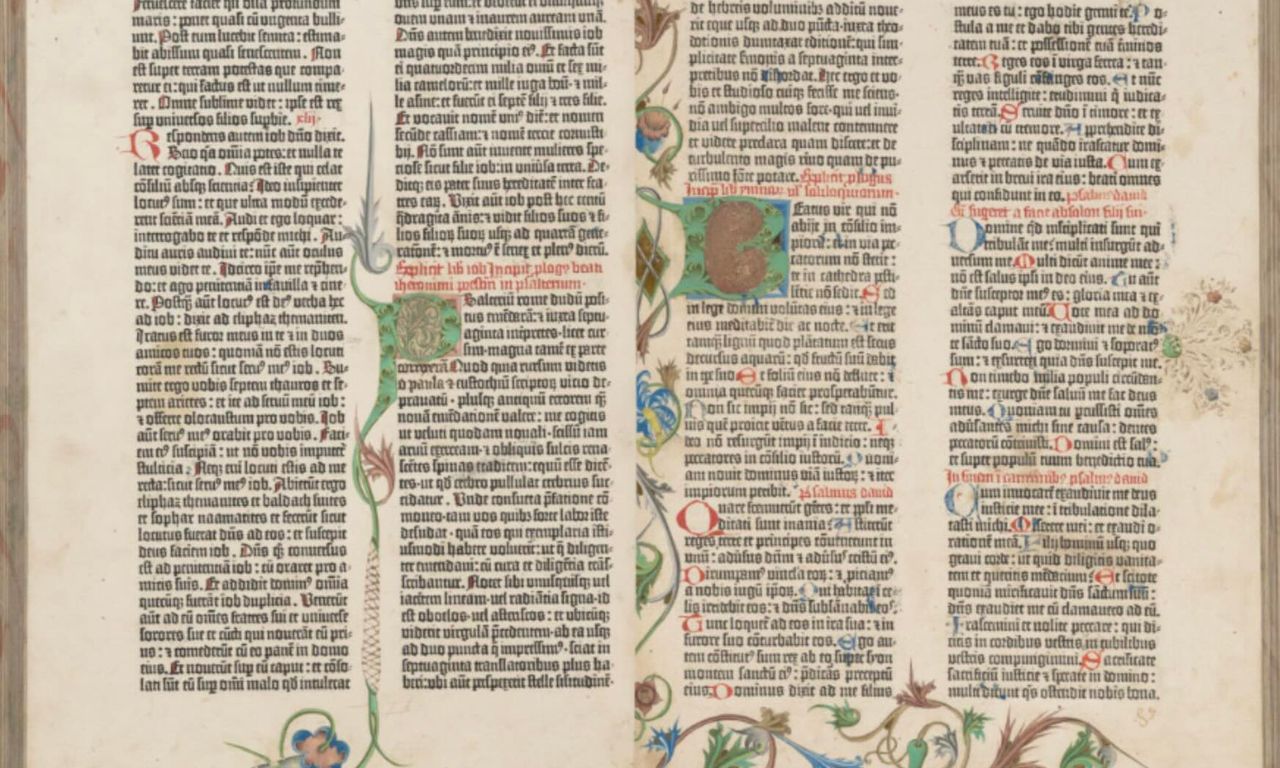 maris: ponet quasi cū vngenta bulli-
unt. Post eum lucebit semita: estima-
bit abissum quasi senescentem. Non
est super terram potestas que compa-
retur ei: qui factus est ut nullum time-
ret. Omne sublime videt: ipse est rex
sup universos filios supbie. xlii
Respondens autem iob dño dixit.
Scio qa omīa potes: et nulla te
latet cogitatio. Quis est iste qui celat
cōsiliū absq; sciencia? Ideo insipienter
locutus sum: et que ultra modū excede-
rent scientiā meā. Audi et ego loquar:
interrogabo te et respōde michi. Au-
ditu auris audiui te: nūc aūt oculus
meus videt te. Idcirco ipe me repħen-
do: et ago penitenciā in fauilla et cine-
re. Postq̄ aūt locut9 est dñs verba hec
ad iob: dixit ad eliphaz themaniten.
Iratus est furor meus in te et in duos
amicos tuos: quoniā nō estis locuti
corā me rectū sicut seru9 me9 iob. Su-
mite ergo vobis septem thauros et se-
ptem arietes: et ite ad seruū meū iob:
et offerte olocaustum pro vobis. Iob
aūt seru9 me9 orabit pro vobis. Faci-
em ei9 suscipiā: ut nō vobis imputet
stulticia. Neq; em̄ locuti estis ad me
recta: sicut seru9 me9 iob. Abierūt ergo
eliphaz themanites et baldach suites
et sophar naamatites et fecerūt sicut
locutus fuerat dñs ad eos: et suscepit
deus faciem iob. Dñs q̄ conuersus
est ad penitenciā iob: cū oraret pro a-
micis suis. Et addidit domin9 omīa
quecūq; fuerāt iob duplicia. Venerūt
aūt ad eū om̄s fratres sui et vniuerse
sorores sue et cūcti qui nouerāt eū pri-
us: et comederūt cū eo panē in domo
eius. Et mouerūt sup eū caput: et cōso-
lati sūt eū sup omī malo qd intulerat
ouem vnam et inaurem auream vnā.
Dñs autem benedixit nouissimis iob
magis quā principio ei9. Et facta sūt
ei quatuordecim milia ouiū et sex mi-
lia camelorū: et mille iuga boū: et mil-
le asine: et fuerūt ei septē filij et tres filie.
Et vocauit nomē vni9 diē: et nomen
secūde cassiam: et nomē tercie cornusti-
bij. Nō sunt aūt inuente mulieres spe-
ciose sicut filie iob: in vniūsa terra. De-
ditq; eis pater suus hereditatē inter fra-
tres eaꝝ. Vixit aūt iob post hec centū
q̄dragīta ānis: et vidit filios suos et fi-
lios filioꝝ suoꝝ usq; ad quartā gene-
rationē: et mortu9 ē senex et plen9 dierū.
Explicit lib iob Incipit plogꝰ beati
iheronimi presbiri in psalterium
Psalteriū rome dudū posi-
tus emēdarā: et iuxta septu-
aginta inīpretes· licet cur-
sim· magna tamē ex parte
correxerā. Quod quia rursum videtis
o paula et eustochiū scriptoꝝ vicio de-
prauatū· plusq; antiquū errorem q̄
nouā emēdationē valere: me cogitis
ut veluti quodam nouali· scissū iam
aruū exerceam: et obliquis sulcis rena-
scētes spinas eradicem: equū esse dicē-
tes· ut qd crebro pullulat crebrius suc-
cidatur. Vnde consueta p̄fatione cō-
moneo· tam vos quibz forte labor iste
desudat· quā eos qui exemplaria isti-
usmodi habere voluerīt: ut q̄ diligen-
ter emendaui: cū cura et diligētia trās-
scribantur. Notet sibi vnusquisq; uel
iacētem lineam· uel radiātia signa· id
est obelos· uel astericos: et vbicūq;
viderit virgulā p̄cedentem· ab ea usq;
ad duo puncta q̄ impressim9· sciat in
septuaginta translatoribus plus ha-
beri: vbi aūt perspexerit stelle similitudinē·
de hebreis voluminibz additū noue-
rit eque usq; ad duo pūcta· iuxta theo-
dotionis dumtaxat editionē: qui sim-
plicitate sermonis a septuaginta inter-
pretibus nō discordat. Hec ergo et vo-
bis et studioso cuiq; fecisse me sciens·
nō ambigo multos fore· qui uel inui-
dia uel supercilio malent contemnere
et videre preclara quam discere: et de
turbulento magis riuo quam de pu-
rissimo fōte potare. Explicit plogus
Incip lib ymnoꝝ ul soliloquiorum
Beatus vir qui nō
abijt in cōsilio im-
pioꝝ: et in via pe-
catorum nō stetit:
et in cathedra pesti-
lētie nō sedit. Sed
in lege domini volūtas eius: et in lege
eius meditabit̄ die ac nocte. Et erit
tamq̄ lignū quod plātatum est secus
decursus aquarū: qd fructū suū dabit
in tpe suo. Et foliū eius nō defluet: et
omnia quecūq; faciet prosperabūtur.
Non sic impij nō sic: sed tanq̄ pul-
uis quē proicit vētus a facie terre. I-
deo nō resurgūt impij ī iudicio: neq;
peccatores in cōsilio iustorū. Quoni-
am nouit dominus viā iustoꝝ: et iter
impiorum peribit. Psalmus dauid
Quare fremuerūt gētes: et ppli me-
ditati sunt inania? Astiterūt
reges terre et principes cōuenerunt in
vnū: aduersus dñm et aduersus cristū ei9.
Dirumpam9 vincla eoꝝ: et piciam9
a nobis iugū ipoꝝ. Qui habitat ī ce-
lis irridebit eos: et dñs subsānabit eos.
Tunc loquet̄ ad eos in ira sua: et in
furore suo cōturbabit eos. Ego au-
tem cōstitut9 sum rex ab eo super syon
montem sanctū ei9: p̄dicās preceptū
eius. Dominus dixit ad me filius
meus es tu: ego hodie genui te. Po-
stula a me et dabo tibi gentes heredi-
tatem tuā: et possessionē tuā ēminos
terre. Reges eos ī virga ferrea: et tan-
q̄ vas figuli cōfringes eos. Et nūc
reges intelligite: erudimini q̄ iudica-
tis terrā. Seruite dño ī timore: et ex-
ultate ei cū tremore. Apprehendite di-
sciplinam: ne quādo irascatur domi-
nus et pereatis de via iusta. Cum ex-
arserit in breui ira eius: beati omnes
qui confidunt in eo. psalmꝰ dauid
Cū fugeret a facie absalon filij sui
Domine qd multiplicati sunt qui
tribulāt me? multi insurgūt ad-
uersum me. Multi dicūt anime mee:
nō est salus ipsi in deo eius. Tu aūt
dñe susceptor me9 es: gloria mea et ex-
altās caput meū. Voce mea ad do-
minū clamaui: et exaudiuit me de mōte
sācto suo. Ego dormiui et soporat9
sum: et exsurrexi quia dñs suscepit me.
Non timebo milia populi circūdan-
tis me: exurge dñe saluū me fac deus
meus. Quoniam tu percussisti om̄es
aduersantes michi sine causa: dentes
peccatorū cōtriuisti. Domini est sal9:
et super populū tuum benedictio tua.
In finem ī carminibꝰ psalmꝰ dauid
Cum inuocarē exaudiuit me deus
iusticie mee: ī tribulatione dila-
tasti michi. Miserere mei: et exaudi o-
rationē meā. Filij hominū usq; quo
graui corde: ut quid diligitis vanita-
tem et queritis mēdacium? Et scitote
quoniā mirificauit dñs sāctum suū:
dñs exaudiet me cū clamauero ad eū.
Irascimini et nolite peccare: qui di-
citis in cordibus vestris in cubilibus
vestris compungimini. Sacrificate
sacrificiū iusticie et sperate in domino:
multi dicūt q̄s ostendit nobis bona.